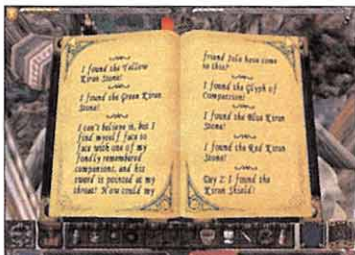 I found the Yellow
Kiron Stone!
I found the Green Kiron
Stone!
I can't believe it, but I
find myself face to
face with one of my
fondly remembered
companions, and his
sword is pointed at my
throat! How could my
friend Jolo have come
to this?
I found the Glyph of
Compassion!
I found the Blue Kiron
Stone!
I found the Red Kiron
Stone!
Day 2: I found the
Kiron Shield!